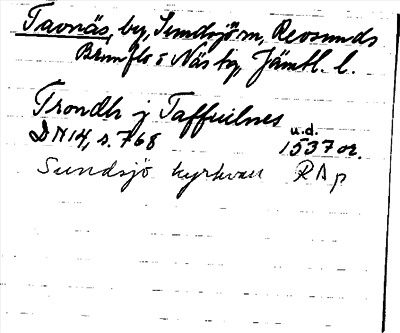 Tavnäs, by, Sundsjö sn, Revsunds
Brunflo o Näs tg, Jämtl. l.
Trondh j Taffuilnes
DN 14, s. 768
u.d.
1537 or.
Sundsjö kyrkvan RA p